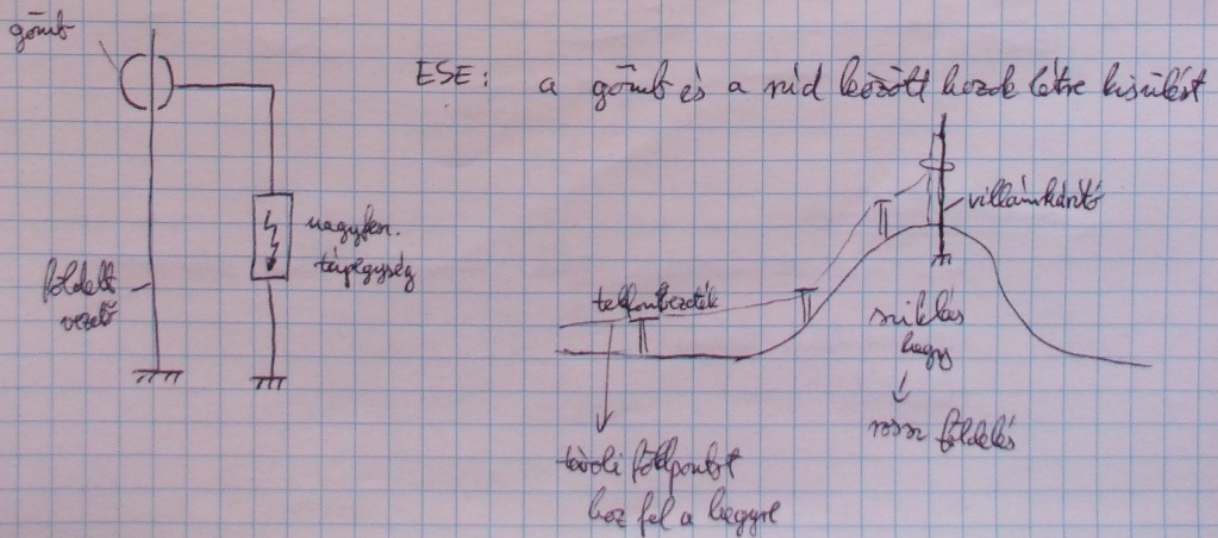 gömb
ESE: a gömb és a rúd között hozok létre kisülést
nagyfesz.
tápegység
földelt
vezető
villámhárító
telefonvezeték
sziklás
hegy
rossz földelés
távoli földpontot
hoz fel a hegyre